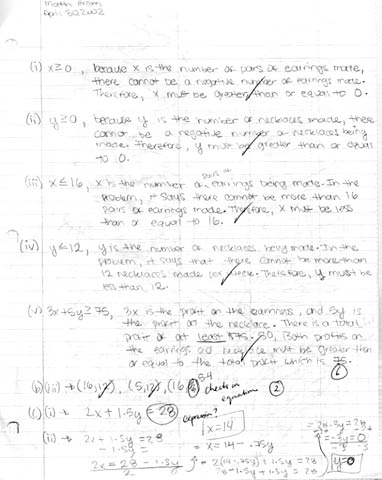 Math Exam
April 30 2002
(i) x≥0, because x is the number of pairs of earrings made,
there cannot be a negative number of earrings made.
Therefore, x must be greater than or equal to 0.
(ii) y≥0, because y is the number of necklaces made, there
cannot be a negative number of necklaces being
made. Therefore, y must be greater than or equal
to 0.
(iii) x≤16, x is the number of pairs of earrings being made. In the
problem, it says there cannot be more than 16
pairs of earrings made. Therefore, x must be less
than or equal to 16.
(iv) y≤12, y is the number of necklaces being made. In the
problem, it says that there cannot be more than
12 necklaces made per week. Therefore, y must be
less than 12.
(v) 3x+5y≥75, 3x is the profit on the earrings, and 5y is
the profit on the necklace. There is a total
profit of at least $75. So, Both profits on
the earrings and necklace must be greater than
or equal to the total profit which is 75.
(b)(iii) → (16,12), (5,12), (16, 5.4
check in
equation
(2)
(c)(i) → 2x + 1.5y = 28
expression?
x=14
(ii) → 2x + 1.5y = 28
- 1.5y =
2x = 28 - 1.5y
2
= x = 14 - .75y
= 2(14-.75y) + 1.5y = 28
28 - 1.5y + 1.5y = 28
-3y = 0
y=0